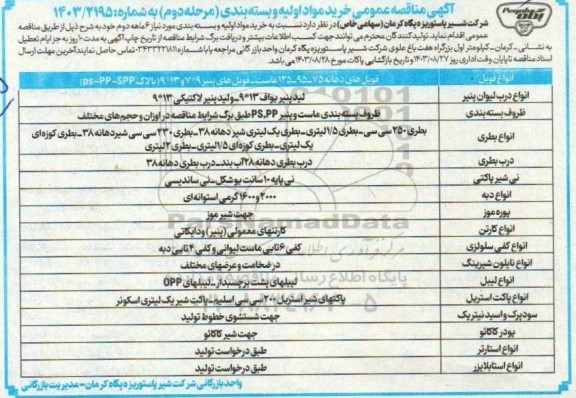 آگهی مناقصه عمومی خرید مواد اولیه و بسته بندی (مرحله دوم) به شماره: ۱۴۰۳/۲۱۹۵
شرکت شیر پاستوریزه پگاه کرمان (سهامی خاص) در نظر دارد نسبت به خرید مواد اولیه و بسته بندی مورد نیاز ۶ ماهه دوم خود به شرح ذیل از طریق مناقصه
عمومی اقدام نماید. تولید کنندگان محترم می توانند جهت کسب اطلاعات بیشتر و دریافت برگ شرایط مناقصه از تاریخ چاپ آگهی به مدت ۱۰ روز به جز ایام تعطیل
به نشانی - کرمان - کیلومتر اول بزرگراه هفت باغ علوی شرکت شیر پاستوریزه پگاه کرمان واحد بازرگانی مراجعه یا با شماره تماس حاصل نمایند. آخرین مهلت ارسال
اسناد مناقصه تا پایان وقت اداری روز ۱۴۰۳/۰۸/۲۷ و تاریخ بازگشایی پاکات مورخ ۱۴۰۳/۰۸/۲۸ می باشد.
انواع فویل
فویل های دهانه ۷۵-۹۵-۱۲۵ ماست-فویل های پنیر ۷*۹ و ۱۳*۹ (با لاک ps-PP-SPP)
انواع درب لیوان پنیر
لید پنیر یواف ۱۳*۹-ولید پنیر لاکتیکی ۱۳*۹
ظروف بسته بندی
ظروف بسته بندی ماست و پنیر PS,PP طبق برگ شرایط مناقصه در اوزان و حجم های مختلف
انواع بطری
بطری ۲۵۰ سی سی-بطری ۱/۵ لیتری-بطری یک لیتری شیر دهانه ۳۸-بطری ۲۳۰ سی سی شیر دهانه ۳۸-بطری کوزه ای
یک لیتری-بطری کوزه ای ۱/۵ لیتری-بطری ۲ لیتری
درب بطری
درب بطری دهانه ۲۸ آب بند-درب بطری دهانه ۳۸
نی شیر پاکتی
نی پایه ۱۰ سانت یو شکل-نی ساندیسی
انواع دبه
۲۰۰۰ و ۱۶۰۰ گرمی استوانه ای
پوره موز
جهت شیر موز
انواع کارتن
کارتنهای معمولی (پنیر) و دایکاتی
انواع کفی سلولزی
کفی ۶ تایی ماست لیوانی و کفی ۴ تایی دبه
انواع نایلون شیرینگ
در ضخامت و عرضهای مختلف
انواع لیبل
لیبلهای پشت برچسبدار-لیبلهای OPP
انواع پاکت استریل
پاکتهای شیر استریل ۲۰۰ سی سی اسلیم-پاکت شیر یک لیتری اسکوئر
سود پرک و اسید نیتریک
جهت شستشوی خطوط تولید
پودر کاکائو
جهت شیر کاکائو
انواع استارتر
طبق درخواست تولید
انواع استابلایزر
طبق درخواست تولید
واحد بازرگانی شرکت شیر پاستوریزه پگاه کرمان-مدیریت بازرگانی